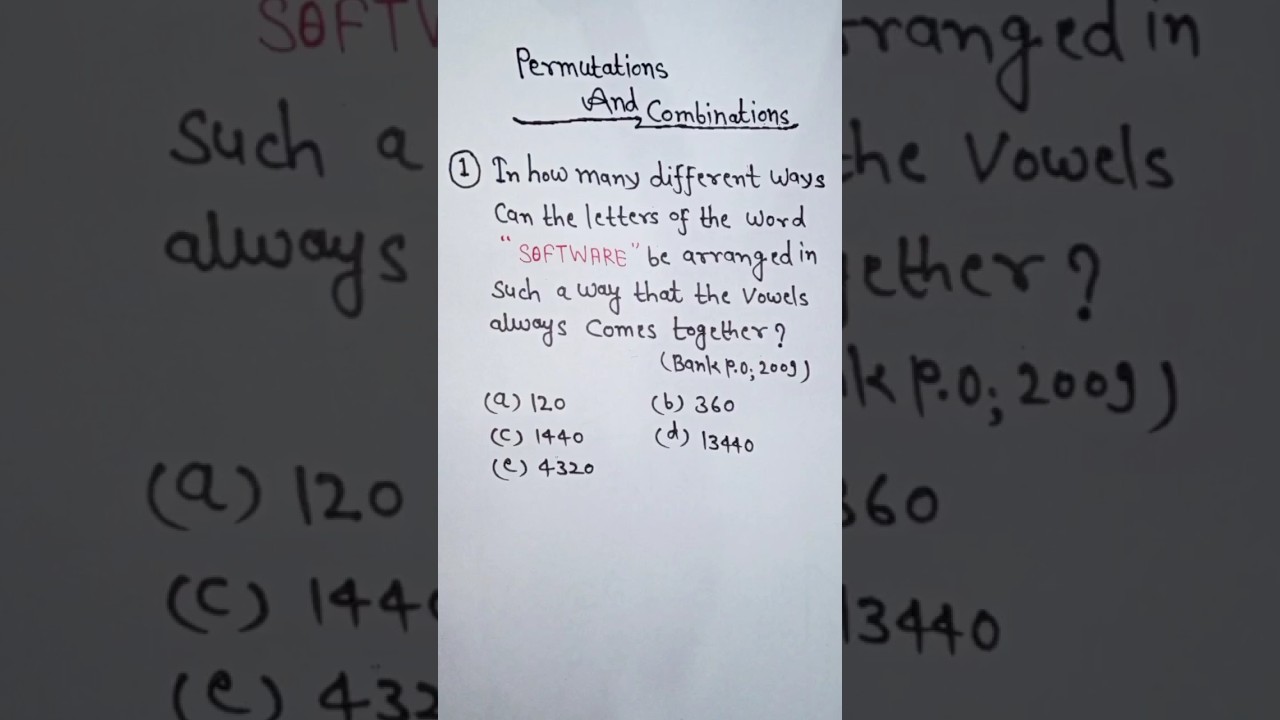 Permutations
And Combinations
① In how many different ways
Can the letters of the word
"SOFTWARE" be arranged in
Such a way that the Vowels
always Comes together?
(Bank P.O; 2009)
(a) 120 (b) 360
(c) 1440 (d) 13440
(e) 4320